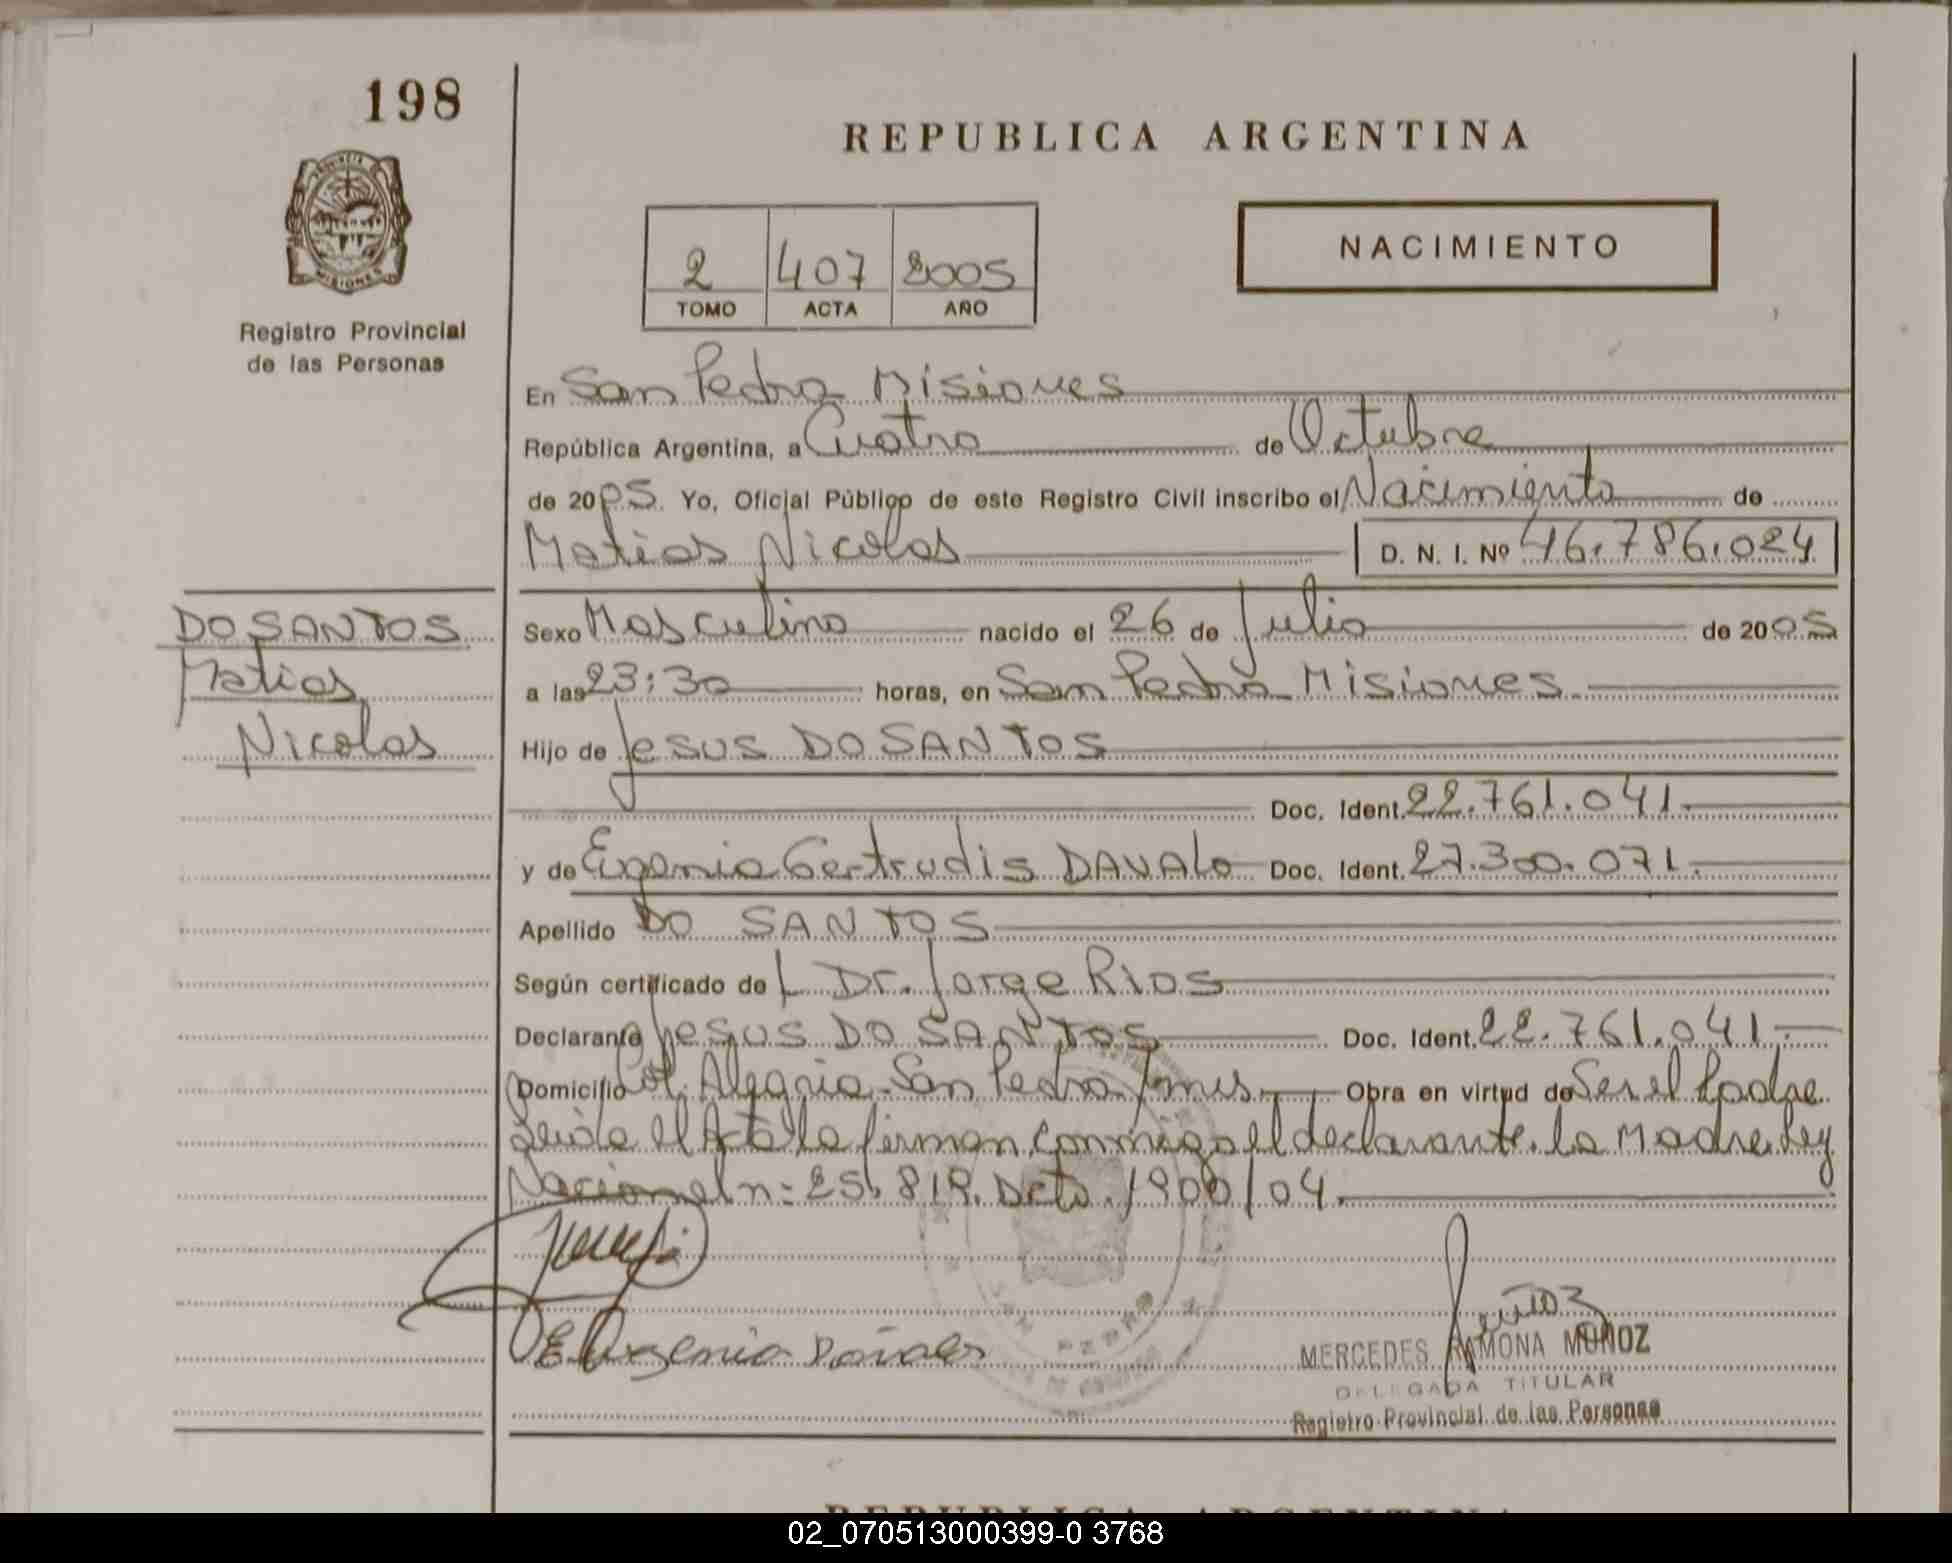 198
REPUBLICA ARGENTINA
PROVINCIA
MISIONES
Registro Provincial
de las Personas
2 407 2005
TOMO ACTA AÑO
NACIMIENTO
En San Pedro Misiones
República Argentina, a Cuatro de Octubre
de 2005. Yo, Oficial Público de este Registro Civil inscribo el Nacimiento de
Matias Nicolas D. N. I. Nº 46.786.024
DO SANTOS
Matias
Nicolas
Sexo Masculino nacido el 26 de Julio de 2005
a las 23:30 horas, en San Pedro Misiones
Hijo de Jesus DO SANTOS
Doc. Ident. 22.761.041.
y de Eugenia Gertrudis DAVALO Doc. Ident. 27.300.071.
Apellido DO SANTOS
Según certificado de L Dr. Jorge Rios
Declarante Jesus DO SANTOS Doc. Ident. 22.761.041.
Domicilio Col. Alegria - San Pedro Mnes. Obra en virtud de Ser el Padre
Leida el Acta la firman conmigo el declarante. la Madre. Ley
Nacional n: 25.819. Dcto. 1900/04.
Eugenia
SAN PEDRO
Muñoz
MERCEDES RAMONA MUÑOZ
DELEGADA TITULAR
Registro Provincial de las Personas
REPUBLICA ARGENTINA
02_070513000399-0 3768